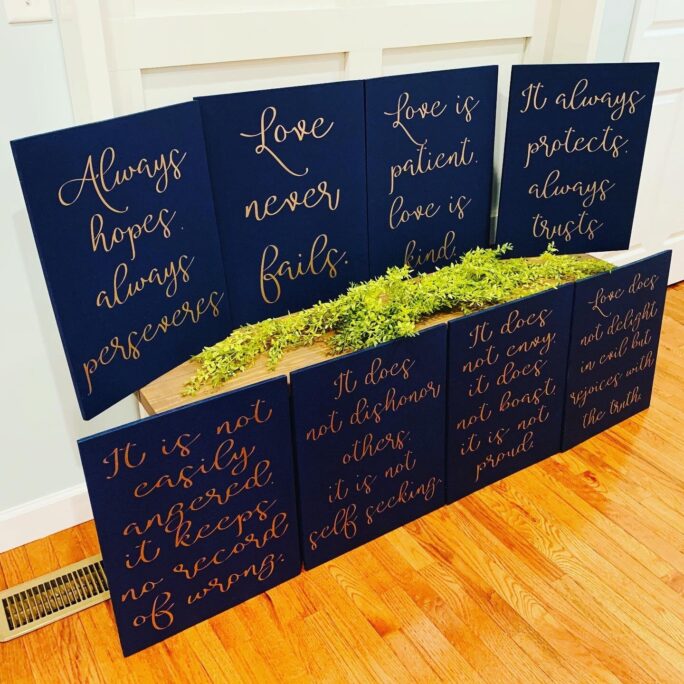 Always
hopes.
always
perseveres
Love
never
fails.
Love is
patient.
love is
kind.
It always
protects.
always
trusts
It is not
easily
angered.
it keeps
no record
of wrong.
It does
not dishonor
others.
it is not
self seeking.
It does
not envy.
it does
not boast.
it is not
proud.
Love does
not delight
in evil but
rejoices with
the truth.